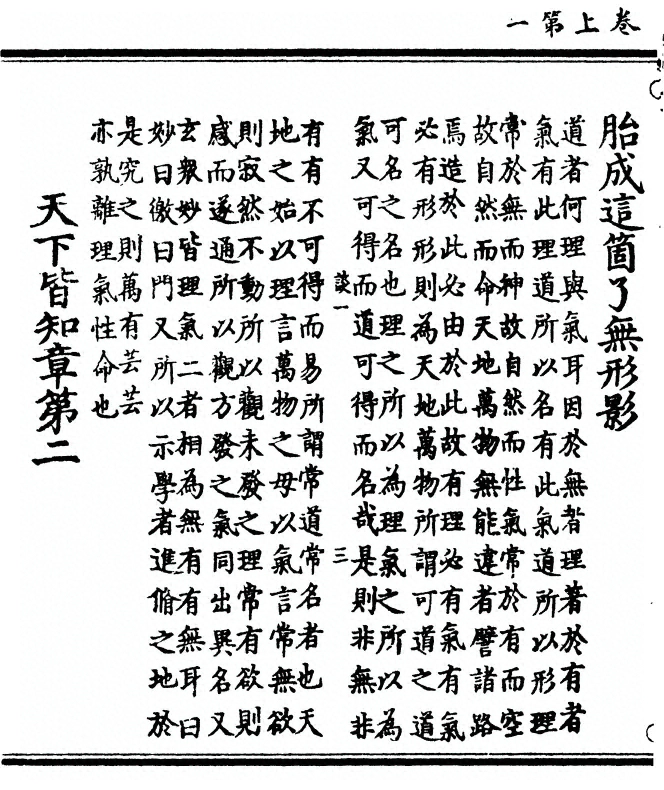 卷上第一
胎成這箇了無形影
道者何理與氣耳因於無者理著於有者
氣有此理道所以名有此氣道所以形理
常於無而神故自然而性氣常於有而空
故自然而命天地萬物無能違者譬諸路
焉造於此必由於此故有理必有氣有氣
必有形形則為天地萬物所謂可道之道
可名之名也理之所以為理氣之所以為
氣又可得而道可得而名哉是則非無非
談一
三
有有不可得而易所謂常道常名者也天
地之始以理言萬物之母以氣言常無欲
則寂然不動所以觀未發之理常有欲則
感而遂通所以觀方發之氣同出異名又
玄衆妙皆理氣二者相為無有有無耳曰
妙曰徼曰門又所以示學者進脩之地於
是究之則萬有芸芸
亦孰離理氣性命也
天下皆知章第二